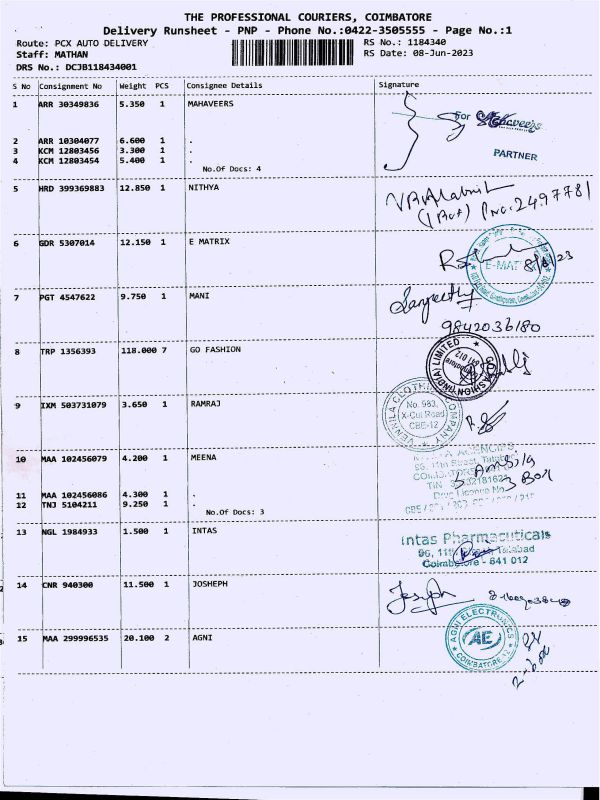 THE PROFESSIONAL COURIERS, COIMBATORE
Delivery Runsheet - PNP - Phone No.:0422-3505555 - Page No.:1
Route: PCX AUTO DELIVERY RS No.: 1184340
Staff: MATHAN RS Date: 08-Jun-2023
DRS No.: DCJB118434001
S No Consignment No Weight PCS Consignee Details Signature
1 ARR 30349836 5.350 1 MAHAVEERS
For Mahaveers
PARTNER
2 ARR 10304077 6.600 1 .
3 KCM 12803456 3.300 1 .
4 KCM 12803454 5.400 1 .
No.Of Docs: 4
5 HRD 399369883 12.850 1 NITHYA
(1 Box) Pno: 2497781
6 GDR 5307014 12.150 1 E MATRIX
E-MAT 8/6/23
7 PGT 4547622 9.750 1 MANI
Sangeetha
9842036180
8 TRP 1356393 118.000 7 GO FASHION
GO FASHION (INDIA) LIMITED
641 012
9 IXM 503731079 3.650 1 RAMRAJ
VENNILA CLOTHING COMPANY
No. 983,
X-Cut Road
CBE-12
10 MAA 102456079 4.200 1 MEENA
AGENCIES
11th Street, Tatabad
TIN
3 Box
Drug Licence No
11 MAA 102456086 4.300 1 .
12 TNJ 5104211 9.250 1 .
No.Of Docs: 3
13 NGL 1984933 1.500 1 INTAS
Intas Pharmaceuticals
96, 11th Tatabad
Coimbatore - 641 012
14 CNR 940300 11.500 1 JOSHEPH
Joseph
15 MAA 299996535 20.100 2 AGNI
AGNI ELECTRONICS
AE
COIMBATORE-12